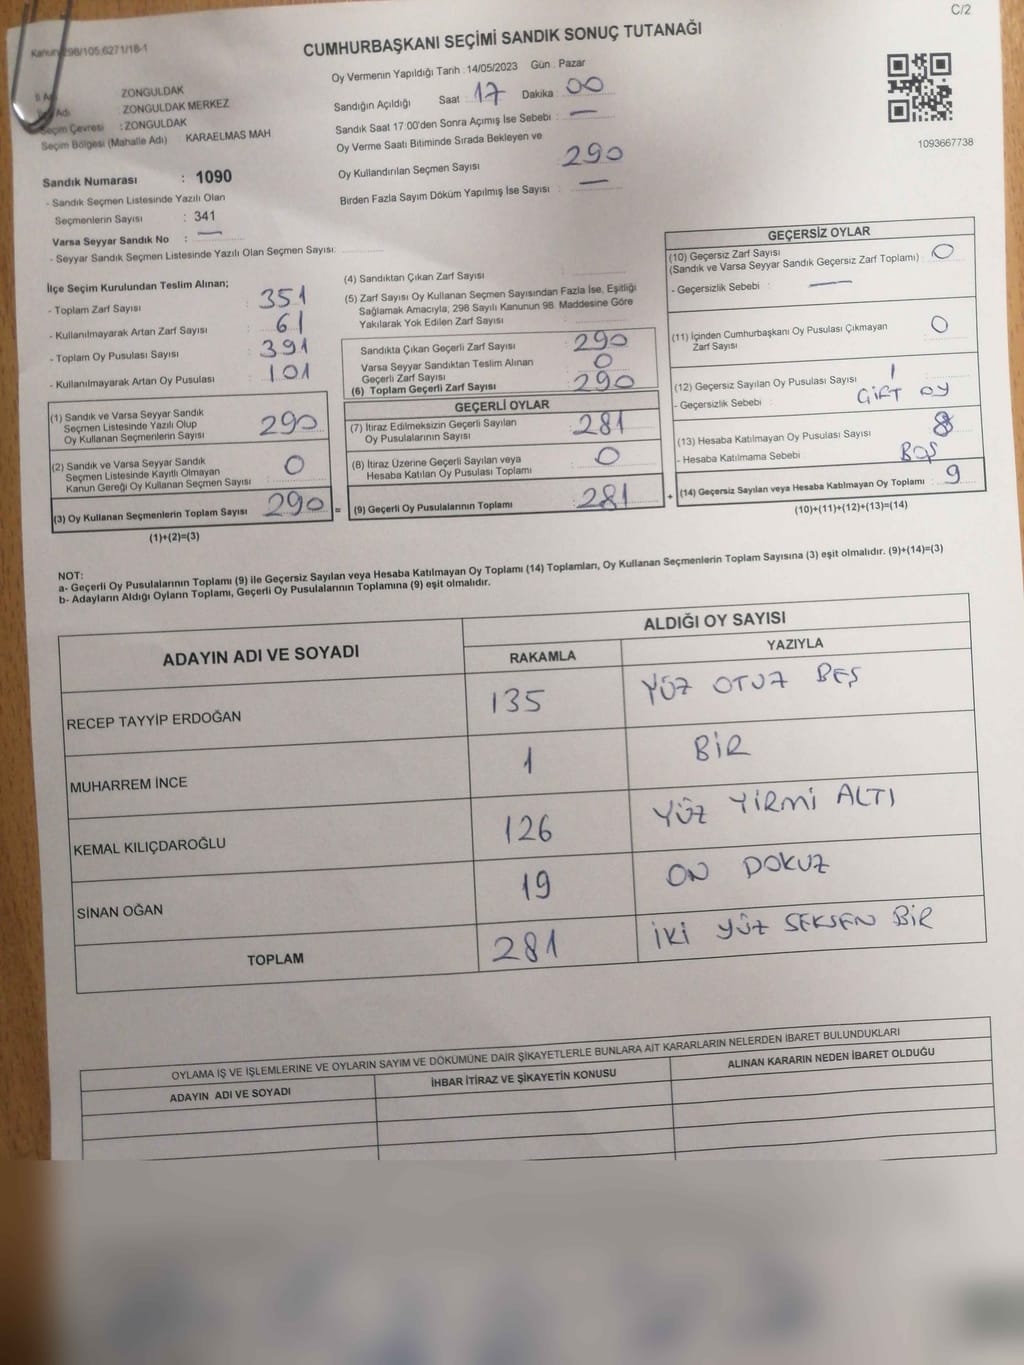 C/2
Kanun 298/105;6271/18-1
CUMHURBAŞKANI SEÇİMİ SANDIK SONUÇ TUTANAĞI
ZONGULDAK
Adı : ZONGULDAK MERKEZ
Seçim Çevresi : ZONGULDAK
Seçim Bölgesi (Mahalle Adı) KARAELMAS MAH
Sandık Numarası : 1090
- Sandık Seçmen Listesinde Yazılı Olan
Seçmenlerin Sayısı : 341
Varsa Seyyar Sandık No : —
- Seyyar Sandık Seçmen Listesinde Yazılı Olan Seçmen Sayısı:
Oy Vermenin Yapıldığı Tarih : 14/05/2023 Gün : Pazar
Sandığın Açıldığı Saat : 17 Dakika : 00
Sandık Saat 17:00'den Sonra Açımış İse Sebebi : —
Oy Verme Saati Bitiminde Sırada Bekleyen ve
Oy Kullandırılan Seçmen Sayısı : 290
Birden Fazla Sayım Döküm Yapılmış İse Sayısı : —
1093667738
İlçe Seçim Kurulundan Teslim Alınan;
- Toplam Zarf Sayısı : 351
- Kullanılmayarak Artan Zarf Sayısı : 61
- Toplam Oy Pusulası Sayısı : 391
- Kullanılmayarak Artan Oy Pusulası : 101
(1) Sandık ve Varsa Seyyar Sandık
Seçmen Listesinde Yazılı Olup
Oy Kullanan Seçmenlerin Sayısı : 290
(2) Sandık ve Varsa Seyyar Sandık
Seçmen Listesinde Kayıtlı Olmayan
Kanun Gereği Oy Kullanan Seçmen Sayısı : 0
(3) Oy Kullanan Seçmenlerin Toplam Sayısı : 290 =
(1)+(2)=(3)
(4) Sandıktan Çıkan Zarf Sayısı :
(5) Zarf Sayısı Oy Kullanan Seçmen Sayısından Fazla İse, Eşitliği
Sağlamak Amacıyla, 298 Sayılı Kanunun 98. Maddesine Göre
Yakılarak Yok Edilen Zarf Sayısı :
Sandıkta Çıkan Geçerli Zarf Sayısı : 290
Varsa Seyyar Sandıktan Teslim Alınan
Geçerli Zarf Sayısı : 0
(6) Toplam Geçerli Zarf Sayısı : 290
GEÇERLİ OYLAR
(7) İtiraz Edilmeksizin Geçerli Sayılan
Oy Pusulalarının Sayısı : 281
(8) İtiraz Üzerine Geçerli Sayılan veya
Hesaba Katılan Oy Pusulası Toplamı : 0
(9) Geçerli Oy Pusulalarının Toplamı : 281 +
GEÇERSİZ OYLAR
(10) Geçersiz Zarf Sayısı
(Sandık ve Varsa Seyyar Sandık Geçersiz Zarf Toplamı) : 0
- Geçersizlik Sebebi : —
(11) İçinden Cumhurbaşkanı Oy Pusulası Çıkmayan
Zarf Sayısı : 0
(12) Geçersiz Sayılan Oy Pusulası Sayısı : 1
- Geçersizlik Sebebi : ÇİFT OY
(13) Hesaba Katılmayan Oy Pusulası Sayısı : 8
- Hesaba Katılmama Sebebi : BOŞ
(14) Geçersiz Sayılan veya Hesaba Katılmayan Oy Toplamı : 9
(10)+(11)+(12)+(13)=(14)
NOT:
a- Geçerli Oy Pusulalarının Toplamı (9) ile Geçersiz Sayılan veya Hesaba Katılmayan Oy Toplamı (14) Toplamları, Oy Kullanan Seçmenlerin Toplam Sayısına (3) eşit olmalıdır. (9)+(14)=(3)
b- Adayların Aldığı Oyların Toplamı, Geçerli Oy Pusulalarının Toplamına (9) eşit olmalıdır.
ADAYIN ADI VE SOYADI
ALDIĞI OY SAYISI
RAKAMLA YAZIYLA
RECEP TAYYİP ERDOĞAN 135 YÜZ OTUZ BEŞ
MUHARREM İNCE 1 BİR
KEMAL KILIÇDAROĞLU 126 YÜZ YİRMİ ALTI
SİNAN OĞAN 19 ON DOKUZ
TOPLAM 281 İKİ YÜZ SEKSEN BİR
OYLAMA İŞ VE İŞLEMLERİNE VE OYLARIN SAYIM VE DÖKÜMÜNE DAİR ŞİKAYETLERLE BUNLARA AİT KARARLARIN NELERDEN İBARET BULUNDUKLARI
ADAYIN ADI VE SOYADI İHBAR İTİRAZ VE ŞİKAYETİN KONUSU ALINAN KARARIN NEDEN İBARET OLDUĞU